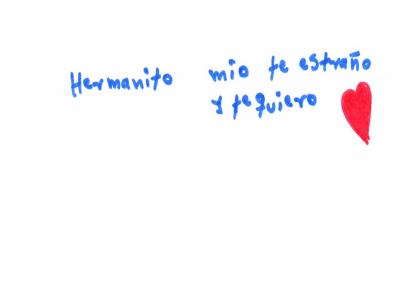 Hermanito mio te estraño
y te quiero